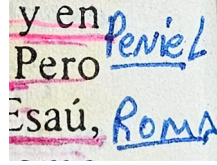 y en Peniel
Pero
Esaú, Roma